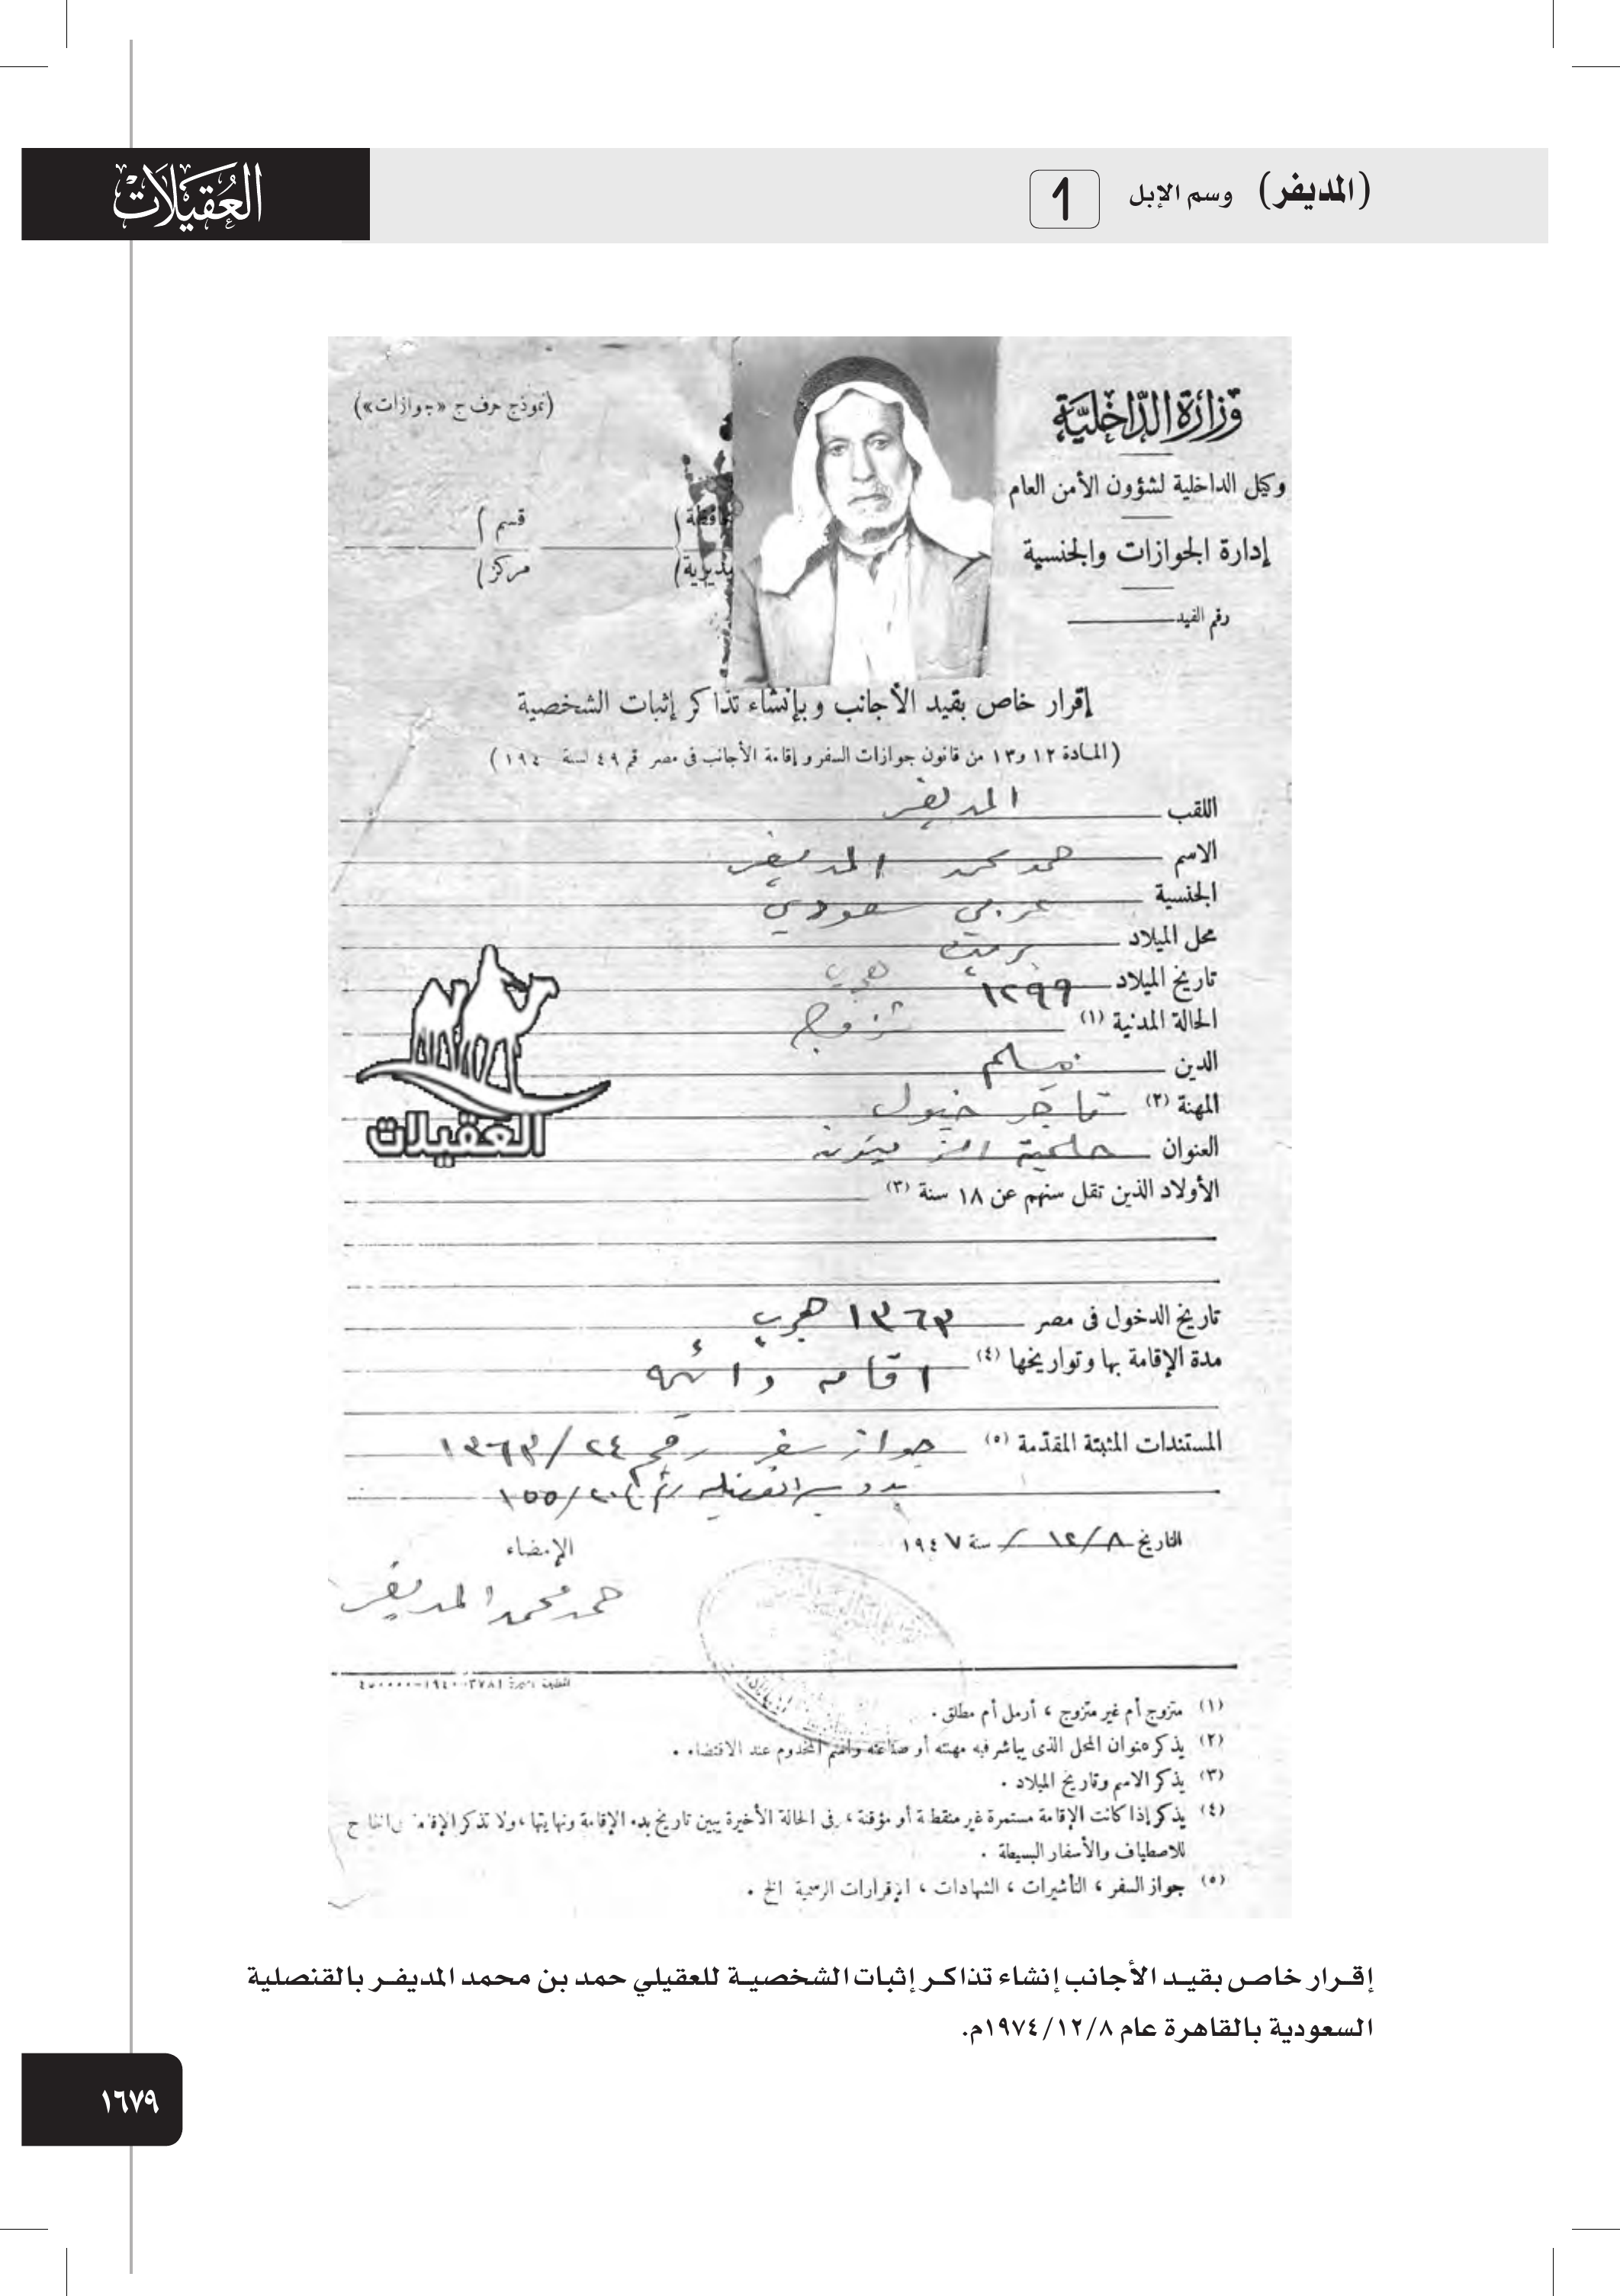 (المديفر) وسم الإبل 1
العُقيلات
(نموذج حرف ج «جوازات»)
وزارة الداخلية
وكيل الداخلية لشؤون الأمن العام
قسم
مركز
إدارة الجوازات والجنسية
رقم القيد
إقرار خاص بقيد الأجانب وبإنشاء تذاكر إثبات الشخصية
(المادة ١٢ و١٣ من قانون جوازات السفر وإقامة الأجانب فى مصر رقم ٤٩ لسنة ١٩٤٠)
اللقب المديفر
الاسم حمد محمد المديفر
الجنسية عربي سعودي
محل الميلاد
تاريخ الميلاد ١٢٩٩
الحالة المدنية (١)
الدين مسلم
المهنة (٢) تاجر خيول
العنوان حلمية الزيتون
الأولاد الذين تقل سنهم عن ١٨ سنة (٣)
العقيلات
تاريخ الدخول فى مصر ١٣٦٣
مدة الإقامة بها وتواريخها (٤) اقامه دائمه
المستندات المثبتة المقدمة (٥) جواز سفر رقم ٢٤/١٣٦٣
التاريخ ٨/١٢/ سنة ١٩٤٧
الإمضاء
حمد محمد المديفر
(١) متزوج أم غير متزوج ، أرمل أم مطلق .
(٢) يذكر عنوان المحل الذى يباشر فيه مهنته أو صناعته واسم المخدوم عند الاقتضاء .
(٣) يذكر الاسم وتاريخ الميلاد .
(٤) يذكر إذا كانت الإقامة مستمرة غير متقطعة أو مؤقتة ، وفى الحالة الأخيرة يبين تاريخ بدء الإقامة ونهايتها ، ولا تذكر الإقامة
للاصطياف والأسفار البسيطة .
(٥) جواز السفر ، التأشيرات ، الشهادات ، الإقرارات الرسمية الخ .
إقرار خاص بقيد الأجانب إنشاء تذاكر إثبات الشخصية للعقيلي حمد بن محمد المديفر بالقنصلية
السعودية بالقاهرة عام ١٩٧٤/١٢/٨م.
١٦٧٩